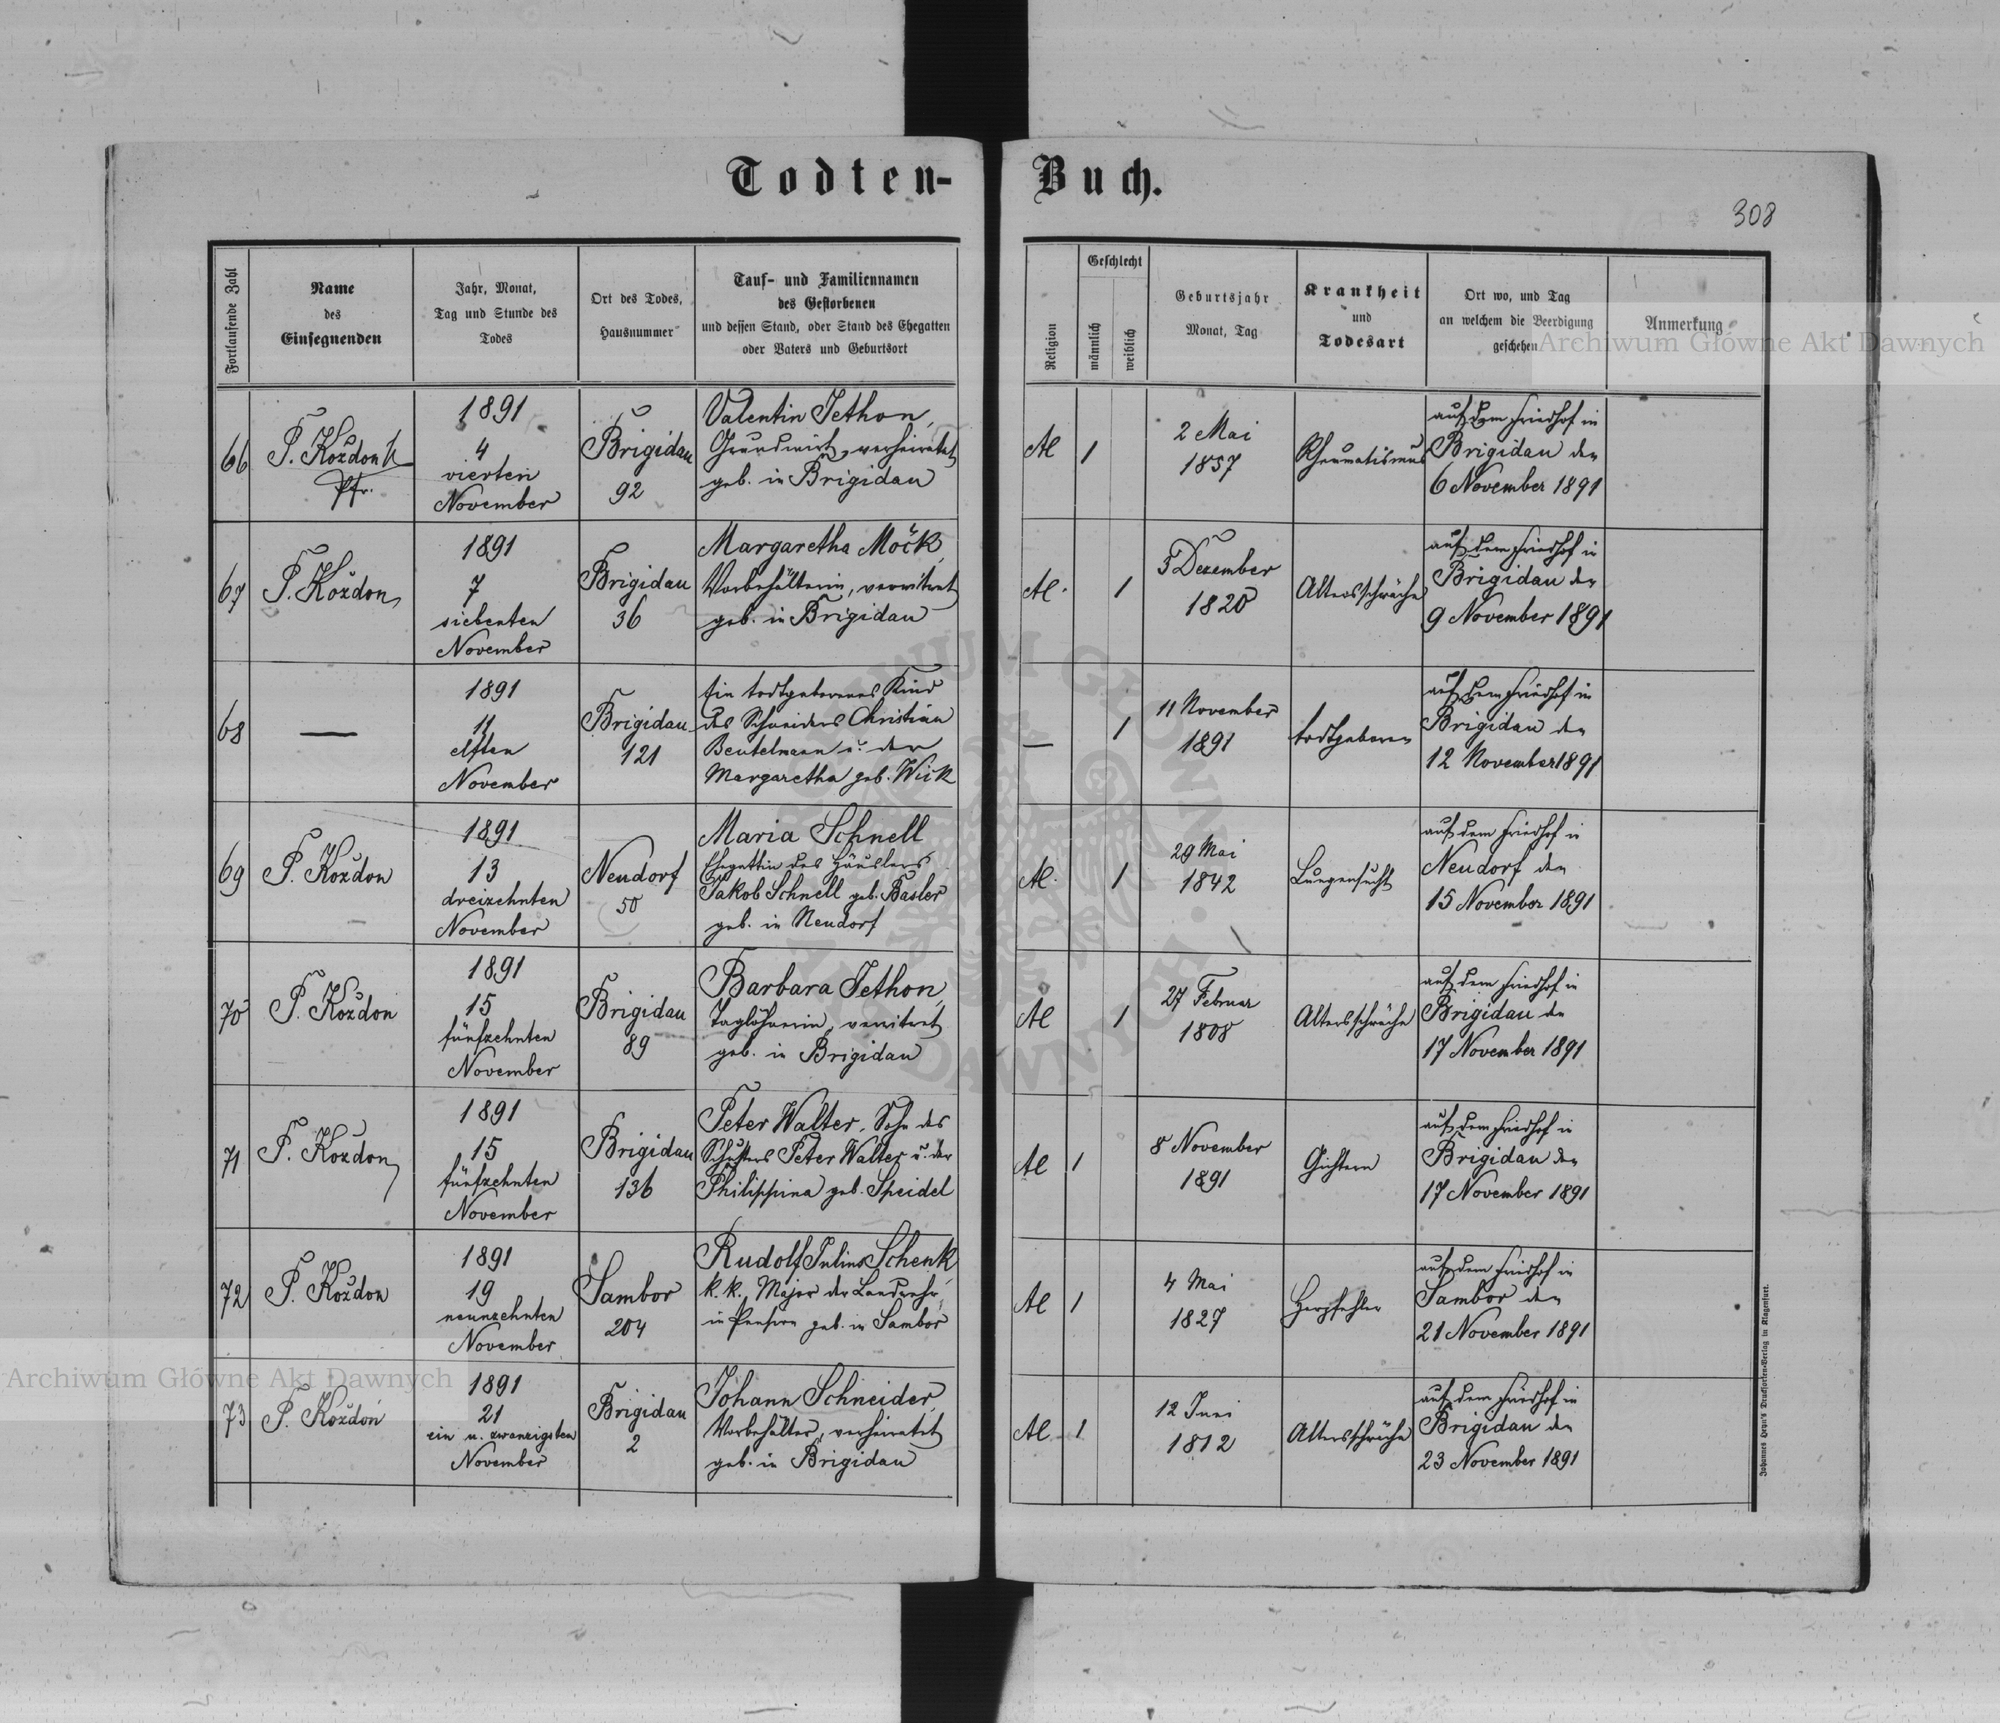 Todten-Buch.
308
Fortlaufende Zahl
Name
des
Einsegnenden
Jahr, Monat,
Tag und Stunde des
Todes
Ort des Todes,
Hausnummer
Tauf- und Familiennamen
des Gestorbenen
und dessen Stand, oder Stand des Ehegatten
oder Vaters und Geburtsort
Religion
Geschlecht
männlich
weiblich
Geburtsjahr
Monat, Tag
Krankheit
und
Todesart
Ort wo, und Tag
an welchem die Beerdigung
geschehen
Anmerkung
66
P. Kozdon
Pfr.
1891
4
vierten
November
Brigidau
92
Valentin Jethon,
Grundwirt, verheiratet
geb. in Brigidau
AC
1
2 Mai
1857
Rheumatismus
auf dem Friedhof in
Brigidau den
6 November 1891
67
P. Kozdon
1891
7
siebenten
November
Brigidau
36
Margaretha Möck,
Vorbehälterin, verwitwet
geb. in Brigidau
AC.
1
5 Dezember
1820
Altersschwäche
auf dem Friedhof in
Brigidau den
9 November 1891
68
—
1891
11
elften
November
Brigidau
121
Ein todtgeborenes Kind
des Schneiders Christian
Beutelmann u. der
Margaretha geb. Wick
—
1
11 November
1891
todtgeboren
auf dem Friedhof in
Brigidau den
12 November 1891
69
P. Kozdon
1891
13
dreizehnten
November
Neudorf
50
Maria Schnell
Ehegattin des Häuslers
Jakob Schnell geb. Basler
geb. in Neudorf
AC.
1
29 Mai
1842
Lungensucht
auf dem Friedhof in
Neudorf den
15 November 1891
70
P. Kozdon
1891
15
fünfzehnten
November
Brigidau
89
Barbara Jethon,
Taglöhnerin, verwitwet
geb. in Brigidau
AC
1
27 Februar
1808
Altersschwäche
auf dem Friedhof in
Brigidau den
17 November 1891
71
P. Kozdon
1891
15
fünfzehnten
November
Brigidau
136
Peter Walter, Sohn des
Schusters Peter Walter u. der
Philippina geb. Speidel
AC
1
8 November
1891
Gichtern
auf dem Friedhof in
Brigidau den
17 November 1891
72
P. Kozdon
1891
19
neunzehnten
November
Sambor
204
Rudolf Julius Schenk,
k. k. Major der Landwehr,
in Pension geb. in Sambor
AC
1
4 Mai
1827
Herzfehler
auf dem Friedhof in
Sambor den
21 November 1891
73
P. Kozdon
1891
21
ein u. zwanzigsten
November
Brigidau
2
Johann Schneider,
Vorbehälter, verheiratet
geb. in Brigidau
AC
1
12 Juni
1812
Altersschwäche
auf dem Friedhof in
Brigidau den
23 November 1891
Johannes Heyn's Drucksorten-Verlag in Klagenfurt.
Archiwum Główne Akt Dawnych
Archiwum Główne Akt Dawnych
ARCHIWUM GŁÓWNE AKT DAWNYCH